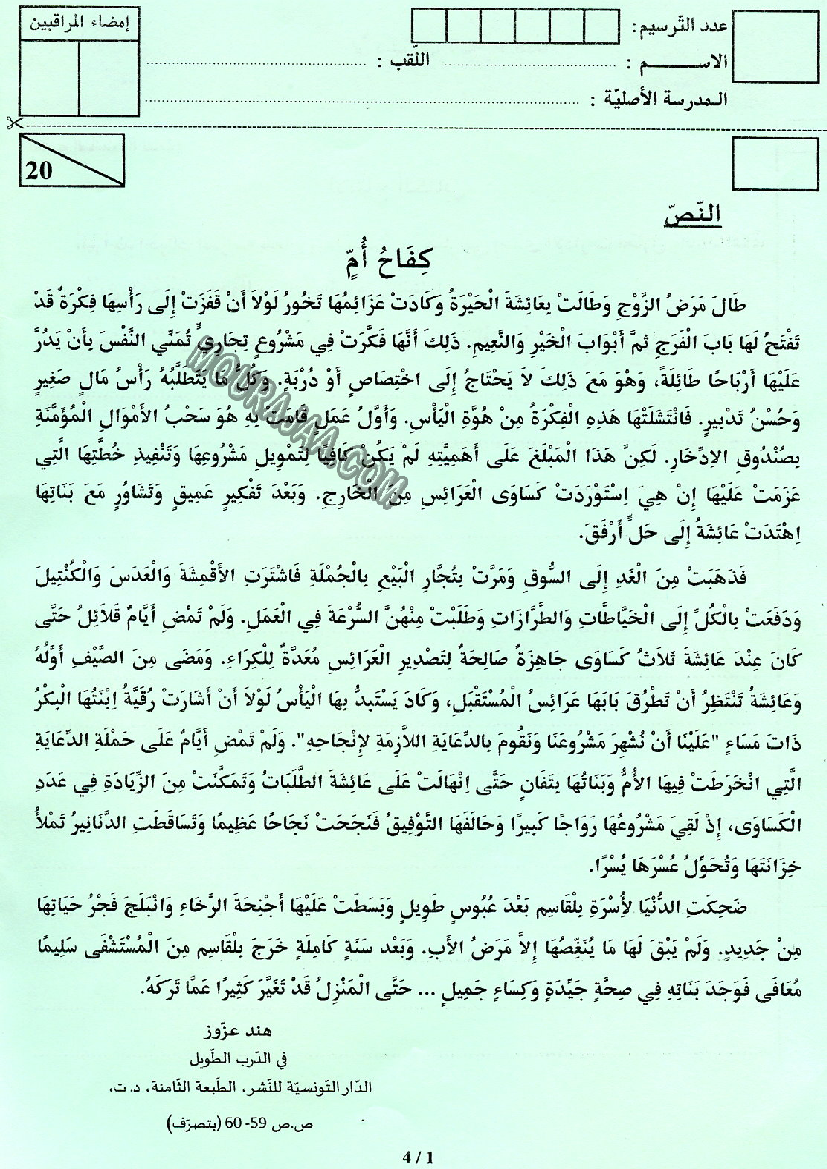 عدد التّرسيم:
إمضاء المراقبين
الاســـــم : ............ اللّقب : ............
المدرسة الأصليّة : ............
20
النّصّ
كِفَاحُ أُمٍّ
طَالَ مَرَضُ الزَّوْجِ وَطَالَتْ بِعَائِشَةَ الْحَيْرَةُ وَكَادَتْ عَزَائِمُهَا تَخُورُ لَوْلاَ أَنْ قَفَزَتْ إِلَى رَأْسِهَا فِكْرَةٌ قَدْ
تَفْتَحُ لَهَا بَابَ الْفَرَجِ ثُمَّ أَبْوَابَ الْخَيْرِ وَالنَّعِيمِ. ذَلِكَ أَنَّهَا فَكَّرَتْ فِي مَشْرُوعٍ تِجَارِيٍّ تُمَنِّي النَّفْسَ بِأَنْ يَدُرَّ
عَلَيْهَا أَرْبَاحًا طَائِلَةً، وَهْوَ مَعَ ذَلِكَ لاَ يَحْتَاجُ إِلَى اخْتِصَاصٍ أَوْ دُرْبَةٍ. وَكُلُّ مَا يَتَطَلَّبُهُ رَأْسُ مَالٍ صَغِيرٍ
وَحُسْنُ تَدْبِيرٍ. فَانْتَشَلَتْهَا هَذِهِ الْفِكْرَةُ مِنْ هُوَّةِ الْيَأْسِ. وَأَوَّلُ عَمَلٍ قَامَتْ بِهِ هُوَ سَحْبُ الأَمْوَالِ الْمُؤَمَّنَةِ
بِصُنْدُوقِ الاِدِّخَارِ. لَكِنَّ هَذَا الْمَبْلَغَ عَلَى أَهَمِيَّتِهِ لَمْ يَكُنْ كَافِيًا لِتَمْوِيلِ مَشْرُوعِهَا وَتَنْفِيذِ خُطَّتِهَا الَّتِي
عَزَمَتْ عَلَيْهَا إِنْ هِيَ اِسْتَوْرَدَتْ كَسَاوَى الْعَرَائِسِ مِنَ الْخَارِجِ. وَبَعْدَ تَفْكِيرٍ عَمِيقٍ وَتَشَاوُرٍ مَعَ بَنَاتِهَا
اِهْتَدَتْ عَائِشَةُ إِلَى حَلٍّ أَرْفَقَ.
فَذَهَبَتْ مِنَ الْغَدِ إِلَى السُّوقِ وَمَرَّتْ بِتُجَّارِ الْبَيْعِ بِالْجُمْلَةِ فَاشْتَرَتِ الأَقْمِشَةَ وَالْعَدَسَ وَالْكُنْتِيلَ
وَدَفَعَتْ بِالْكُلِّ إِلَى الْخَيَّاطَاتِ وَالطَّرَّازَاتِ وَطَلَبَتْ مِنْهُنَّ السُّرْعَةَ فِي الْعَمَلِ. وَلَمْ تَمْضِ أَيَّامٌ قَلاَئِلُ حَتَّى
كَانَ عِنْدَ عَائِشَةَ ثَلاَثُ كَسَاوَى جَاهِزَةٌ صَالِحَةٌ لِتَصْدِيرِ الْعَرَائِسِ مُعَدَّةٌ لِلْكِرَاءِ. وَمَضَى مِنَ الصَّيْفِ أَوَّلُهُ
وَعَائِشَةُ تَنْتَظِرُ أَنْ تَطْرُقَ بَابَهَا عَرَائِسُ الْمُسْتَقْبَلِ، وَكَادَ يَسْتَبِدُّ بِهَا الْيَأْسُ لَوْلاَ أَنْ أَشَارَتْ رُقَيَّةُ اِبْنَتُهَا الْبِكْرُ
ذَاتَ مَسَاءٍ "عَلَيْنَا أَنْ نُشْهِرَ مَشْرُوعَنَا وَنَقُومَ بِالدِّعَايَةِ اللاَّزِمَةِ لإِنْجَاحِهِ". وَلَمْ تَمْضِ أَيَّامٌ عَلَى حَمْلَةِ الدِّعَايَةِ
الَّتِي انْخَرَطَتْ فِيهَا الأُمُّ وَبَنَاتُهَا بِتَفَانٍ حَتَّى اِنْهَالَتْ عَلَى عَائِشَةَ الطَّلَبَاتُ وَتَمَكَّنَتْ مِنَ الزِّيَادَةِ فِي عَدَدِ
الْكَسَاوَى، إِذْ لَقِيَ مَشْرُوعُهَا رَوَاجًا كَبِيرًا وَحَالَفَهَا التَّوْفِيقُ فَنَجَحَتْ نَجَاحًا عَظِيمًا وَتَسَاقَطَتِ الدَّنَانِيرُ تَمْلأُ
خِزَانَتَهَا وَتُحَوِّلُ عُسْرَهَا يُسْرًا.
ضَحِكَتِ الدُّنْيَا لأُسْرَةِ بِلْقَاسِم بَعْدَ عُبُوسٍ طَوِيلٍ وَبَسَطَتْ عَلَيْهَا أَجْنِحَةَ الرَّخَاءِ وَانْبَلَجَ فَجْرُ حَيَاتِهَا
مِنْ جَدِيدٍ. وَلَمْ يَبْقَ لَهَا مَا يُنَغِّصُهَا إِلاَّ مَرَضُ الأَبِ. وَبَعْدَ سَنَةٍ كَامِلَةٍ خَرَجَ بِلْقَاسِم مِنَ الْمُسْتَشْفَى سَلِيمًا
مُعَافًى فَوَجَدَ بَنَاتِهِ فِي صِحَّةٍ جَيِّدَةٍ وَكِسَاءٍ جَمِيلٍ ... حَتَّى الْمَنْزِلُ قَدْ تَغَيَّرَ كَثِيرًا عَمَّا تَرَكَهُ.
هند عزّوز
في الدّرب الطّويل
الدّار التّونسيّة للنّشر، الطّبعة الثّامنة، د.ت،
ص.ص 59- 60 (بتصرّف)
4 / 1
MOURAJAA.COM